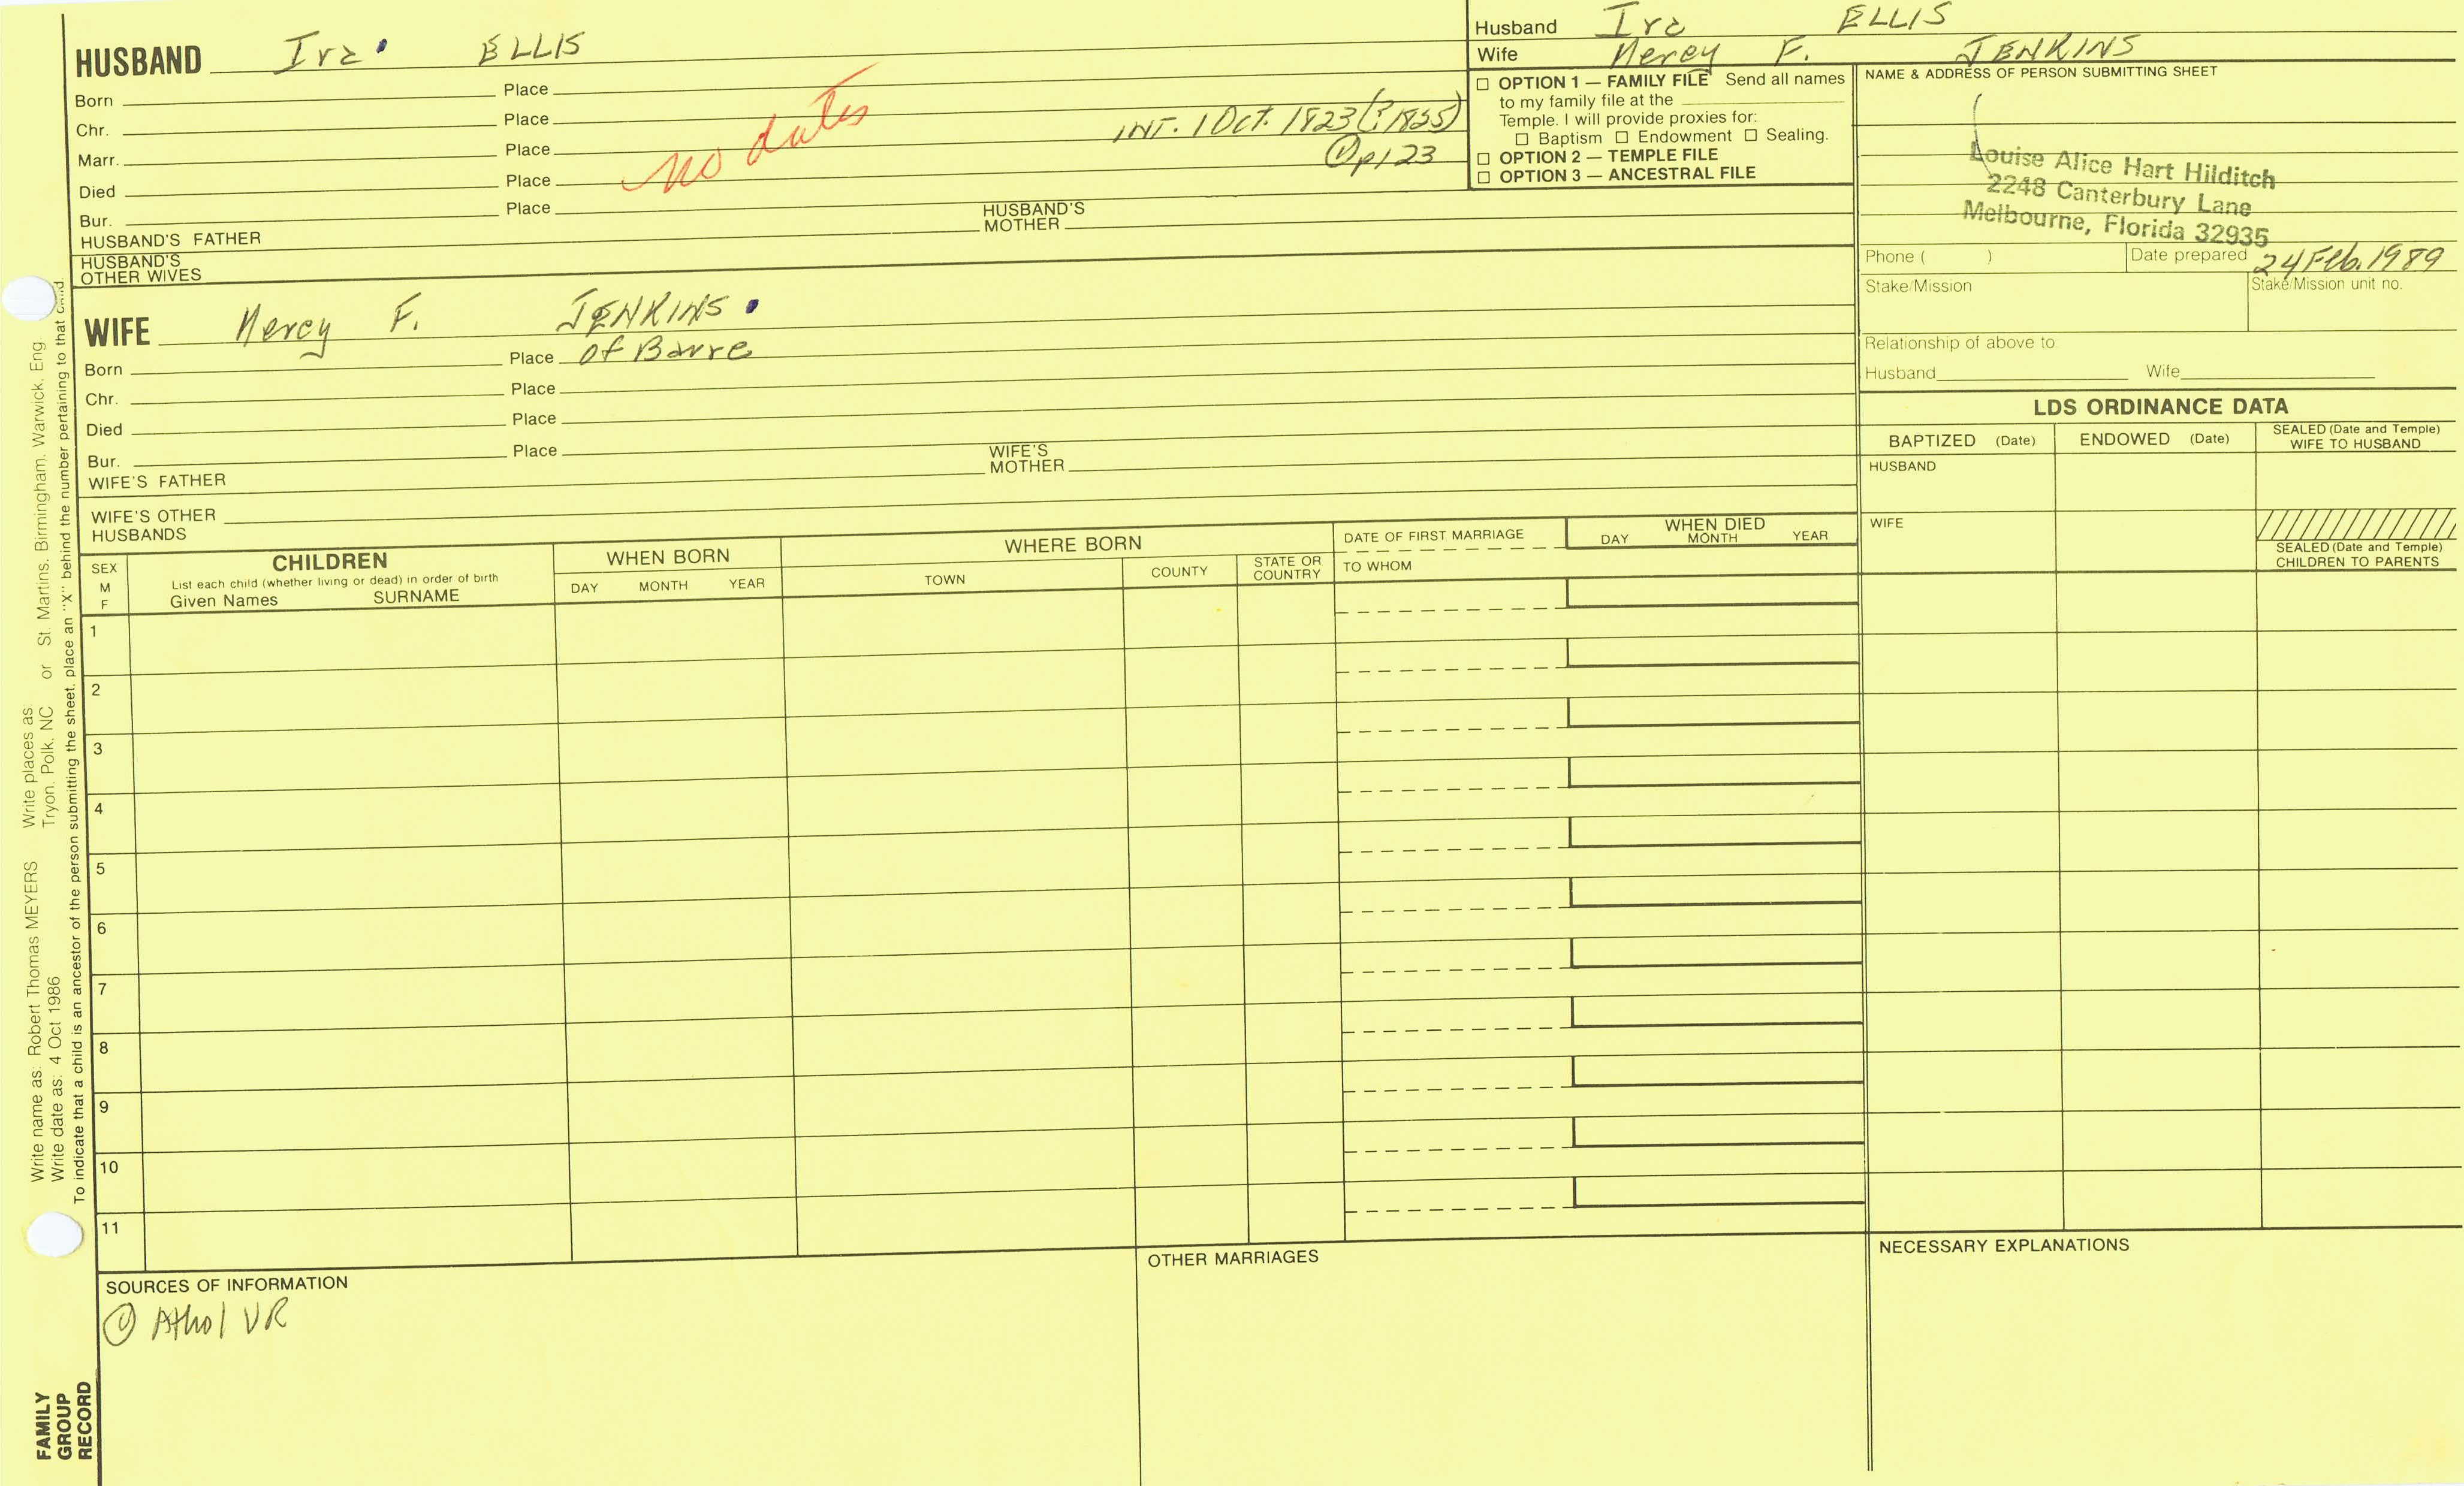 HUSBAND Ira ELLIS
Born Place
Chr. Place
Marr. Place INT. 1 Oct. 1823 (? 1835)
no dates
① p 123
Died Place
Bur. Place
HUSBAND'S FATHER HUSBAND'S MOTHER
HUSBAND'S OTHER WIVES
WIFE Mercy F. JENKINS
Born Place of Barre
Chr. Place
Died Place
Bur. Place
WIFE'S FATHER WIFE'S MOTHER
WIFE'S OTHER HUSBANDS
Husband Ira ELLIS
Wife Mercy F. JENKINS
☐ OPTION 1 — FAMILY FILE Send all names
to my family file at the
Temple. I will provide proxies for:
☐ Baptism ☐ Endowment ☐ Sealing.
☐ OPTION 2 — TEMPLE FILE
☐ OPTION 3 — ANCESTRAL FILE
NAME & ADDRESS OF PERSON SUBMITTING SHEET
Louise Alice Hart Hilditch
2248 Canterbury Lane
Melbourne, Florida 32935
Phone ( ) Date prepared 24 Feb. 1989
Stake/Mission Stake/Mission unit no.
Relationship of above to
Husband Wife
LDS ORDINANCE DATA
BAPTIZED (Date) ENDOWED (Date) SEALED (Date and Temple)
WIFE TO HUSBAND
HUSBAND
WIFE
SEALED (Date and Temple)
CHILDREN TO PARENTS
SEX
M
F
CHILDREN
List each child (whether living or dead) in order of birth
Given Names SURNAME
WHEN BORN
DAY MONTH YEAR
WHERE BORN
TOWN COUNTY STATE OR COUNTRY
DATE OF FIRST MARRIAGE
TO WHOM
WHEN DIED
DAY MONTH YEAR
1
2
3
4
5
6
7
8
9
10
11
SOURCES OF INFORMATION
① Athol VR
OTHER MARRIAGES
NECESSARY EXPLANATIONS
Write name as: Robert Thomas MEYERS Write places as: St. Martins, Birmingham, Warwick, Eng
Write date as: 4 Oct 1986 Tryon, Polk, NC or
To indicate that a child is an ancestor of the person submitting the sheet, place an "X" behind the number pertaining to that child.
FAMILY
GROUP
RECORD